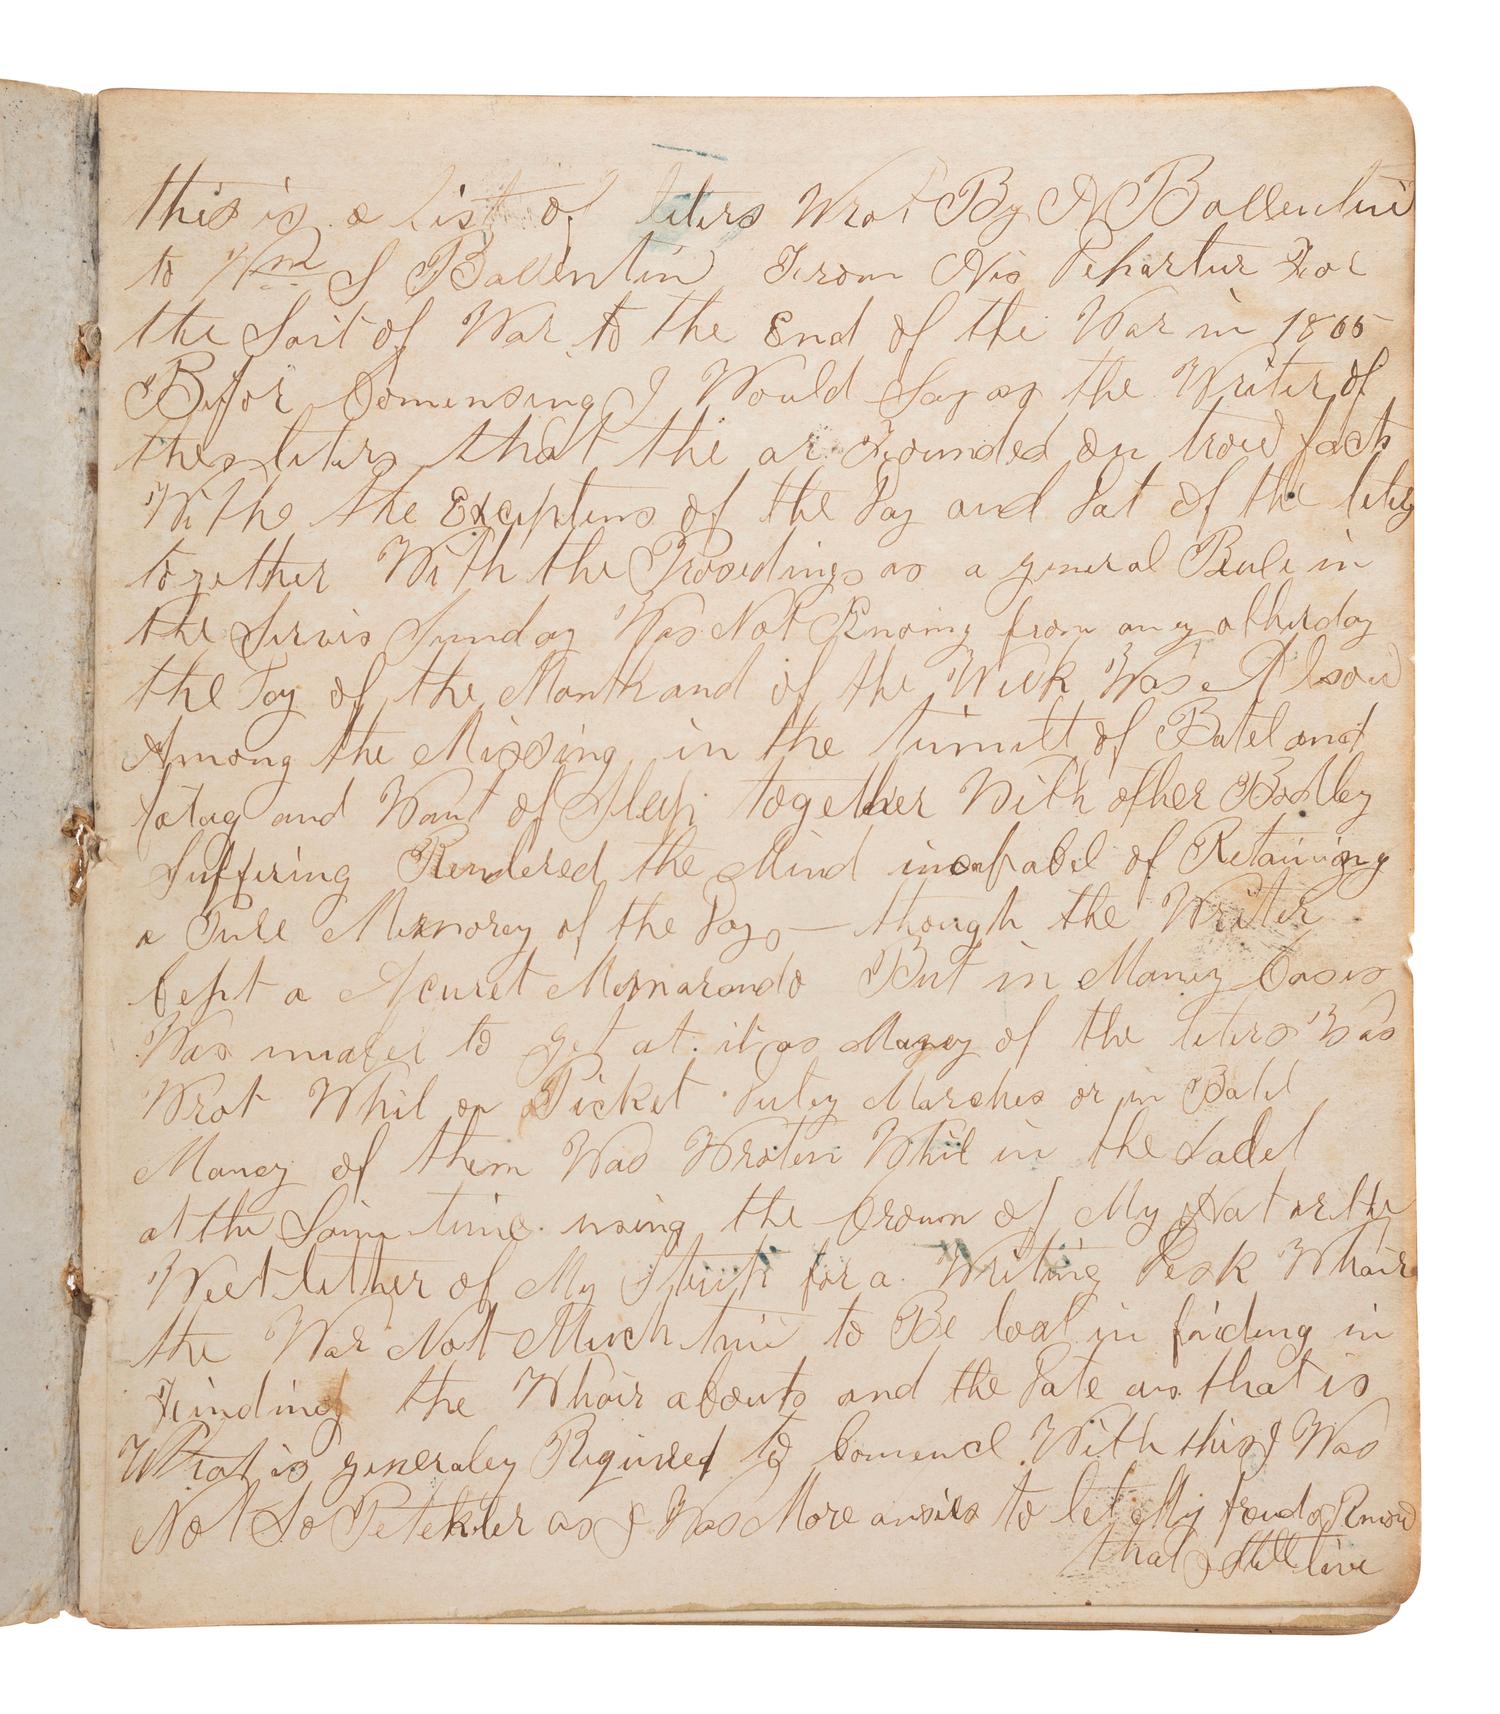 this is a list of leters Wrot By A Ballentine
to Wm S Ballentin From His Departur For
the Sait of War to the End of the War in 1865
Befor Comensing I Would Say as the Writer of
thes leters that the ar Founded on trow facts
Withe the Exceptins of the Day and Dat of the leters
together With the Prosedings as a general Rule in
the Servis Sunday Was Not Knoing from aney otherday
the Day of the Month and of the Week Was Alsow
Among the Missing in the tumilt of Batel and
fatag and Want of Sleep together With other Bodley
Suffering Rendered the Mind incapabel of Retaining
a Pure Memorey of the Days — though the Writer
Cept a Acuret Memarando But in Maney Cases
Was unabel to get at it as Maney of the leters Was
Wrot Whil on Picket Dutey Marches or in Batel
Maney of them Was Wroten Whil in the Sadel
at the Saim time using the Crown of My Hat or the
Wet lether of My for a Writing Desk Whair
the War Not Much time to Be lost in in
Finding the Whair abouts and the Date as that is
What is generaley Requierd to Comence With this I Was
Not So Petekler as I Was More ansies to let My frends Know
that I Still live